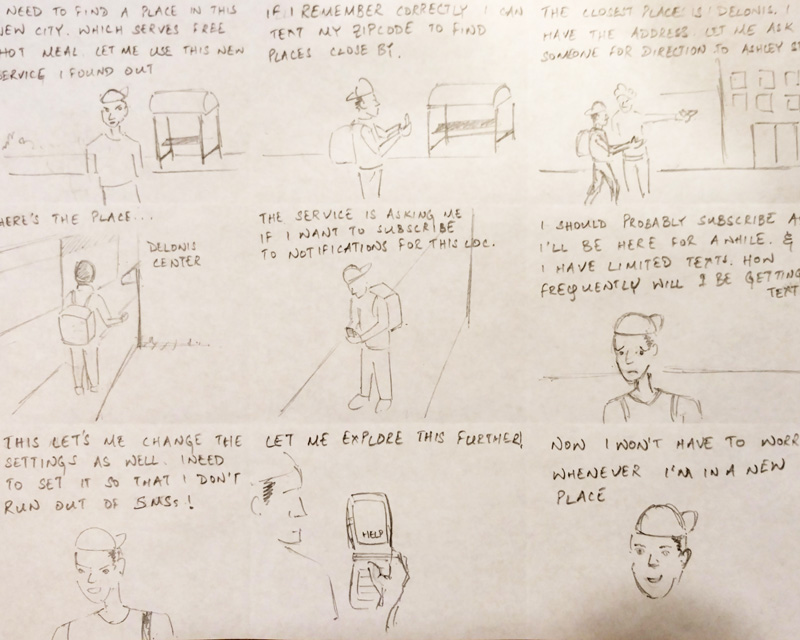 NEED TO FIND A PLACE IN THIS
NEW CITY. WHICH SERVES FREE
HOT MEAL. LET ME USE THIS NEW
SERVICE I FOUND OUT
IF I REMEMBER CORRECTLY I CAN
TEXT MY ZIPCODE TO FIND
PLACES CLOSE BY.
THE CLOSEST PLACE IS DELONIS. I
HAVE THE ADDRESS. LET ME ASK
SOMEONE FOR DIRECTION TO ASHLEY ST
HERE'S THE PLACE...
DELONIS
CENTER
THE SERVICE IS ASKING ME
IF I WANT TO SUBSCRIBE
TO NOTIFICATIONS FOR THIS LOC.
I SHOULD PROBABLY SUBSCRIBE AS
I'LL BE HERE FOR A WHILE. &
I HAVE LIMITED TEXTS. HOW
FREQUENTLY WILL I BE GETTING
TEXT
THIS LET'S ME CHANGE THE
SETTINGS AS WELL. I NEED
TO SET IT SO THAT I DON'T
RUN OUT OF SMSs!
LET ME EXPLORE THIS FURTHER
HELP
NOW I WON'T HAVE TO WORR
WHENEVER I'M IN A NEW
PLACE